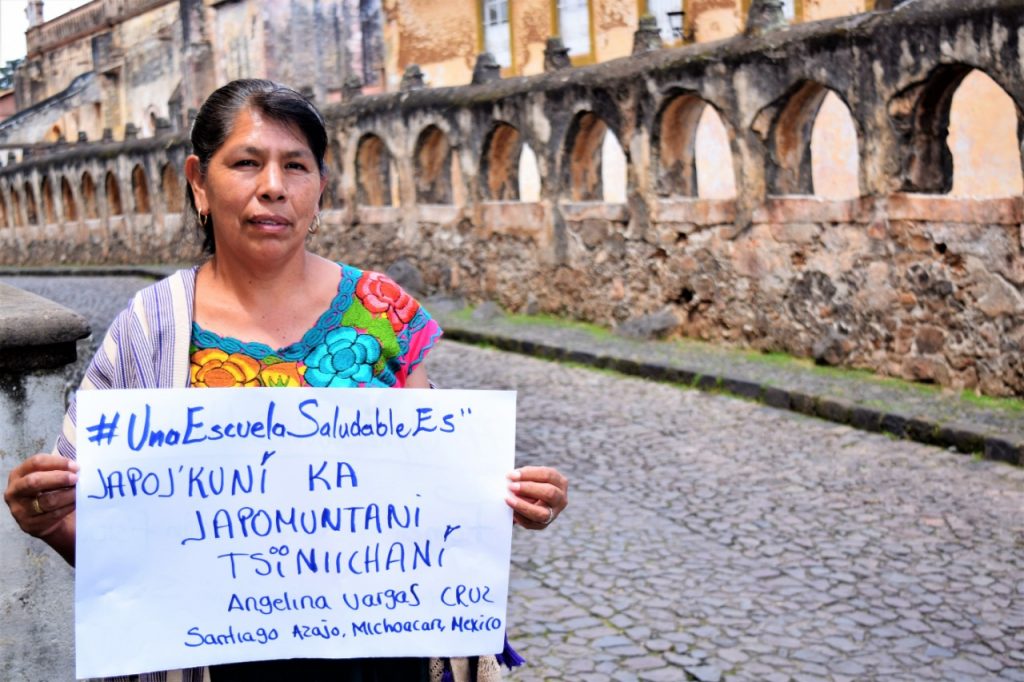 #UnaEscuelaSaludableEs"
JAPOJ'KUNÍ KA
JAPOMUNTANI
TSÏNIICHANÍ
Angelina Vargas CRUZ
Santiago Azajo, Michoacan, Mexico